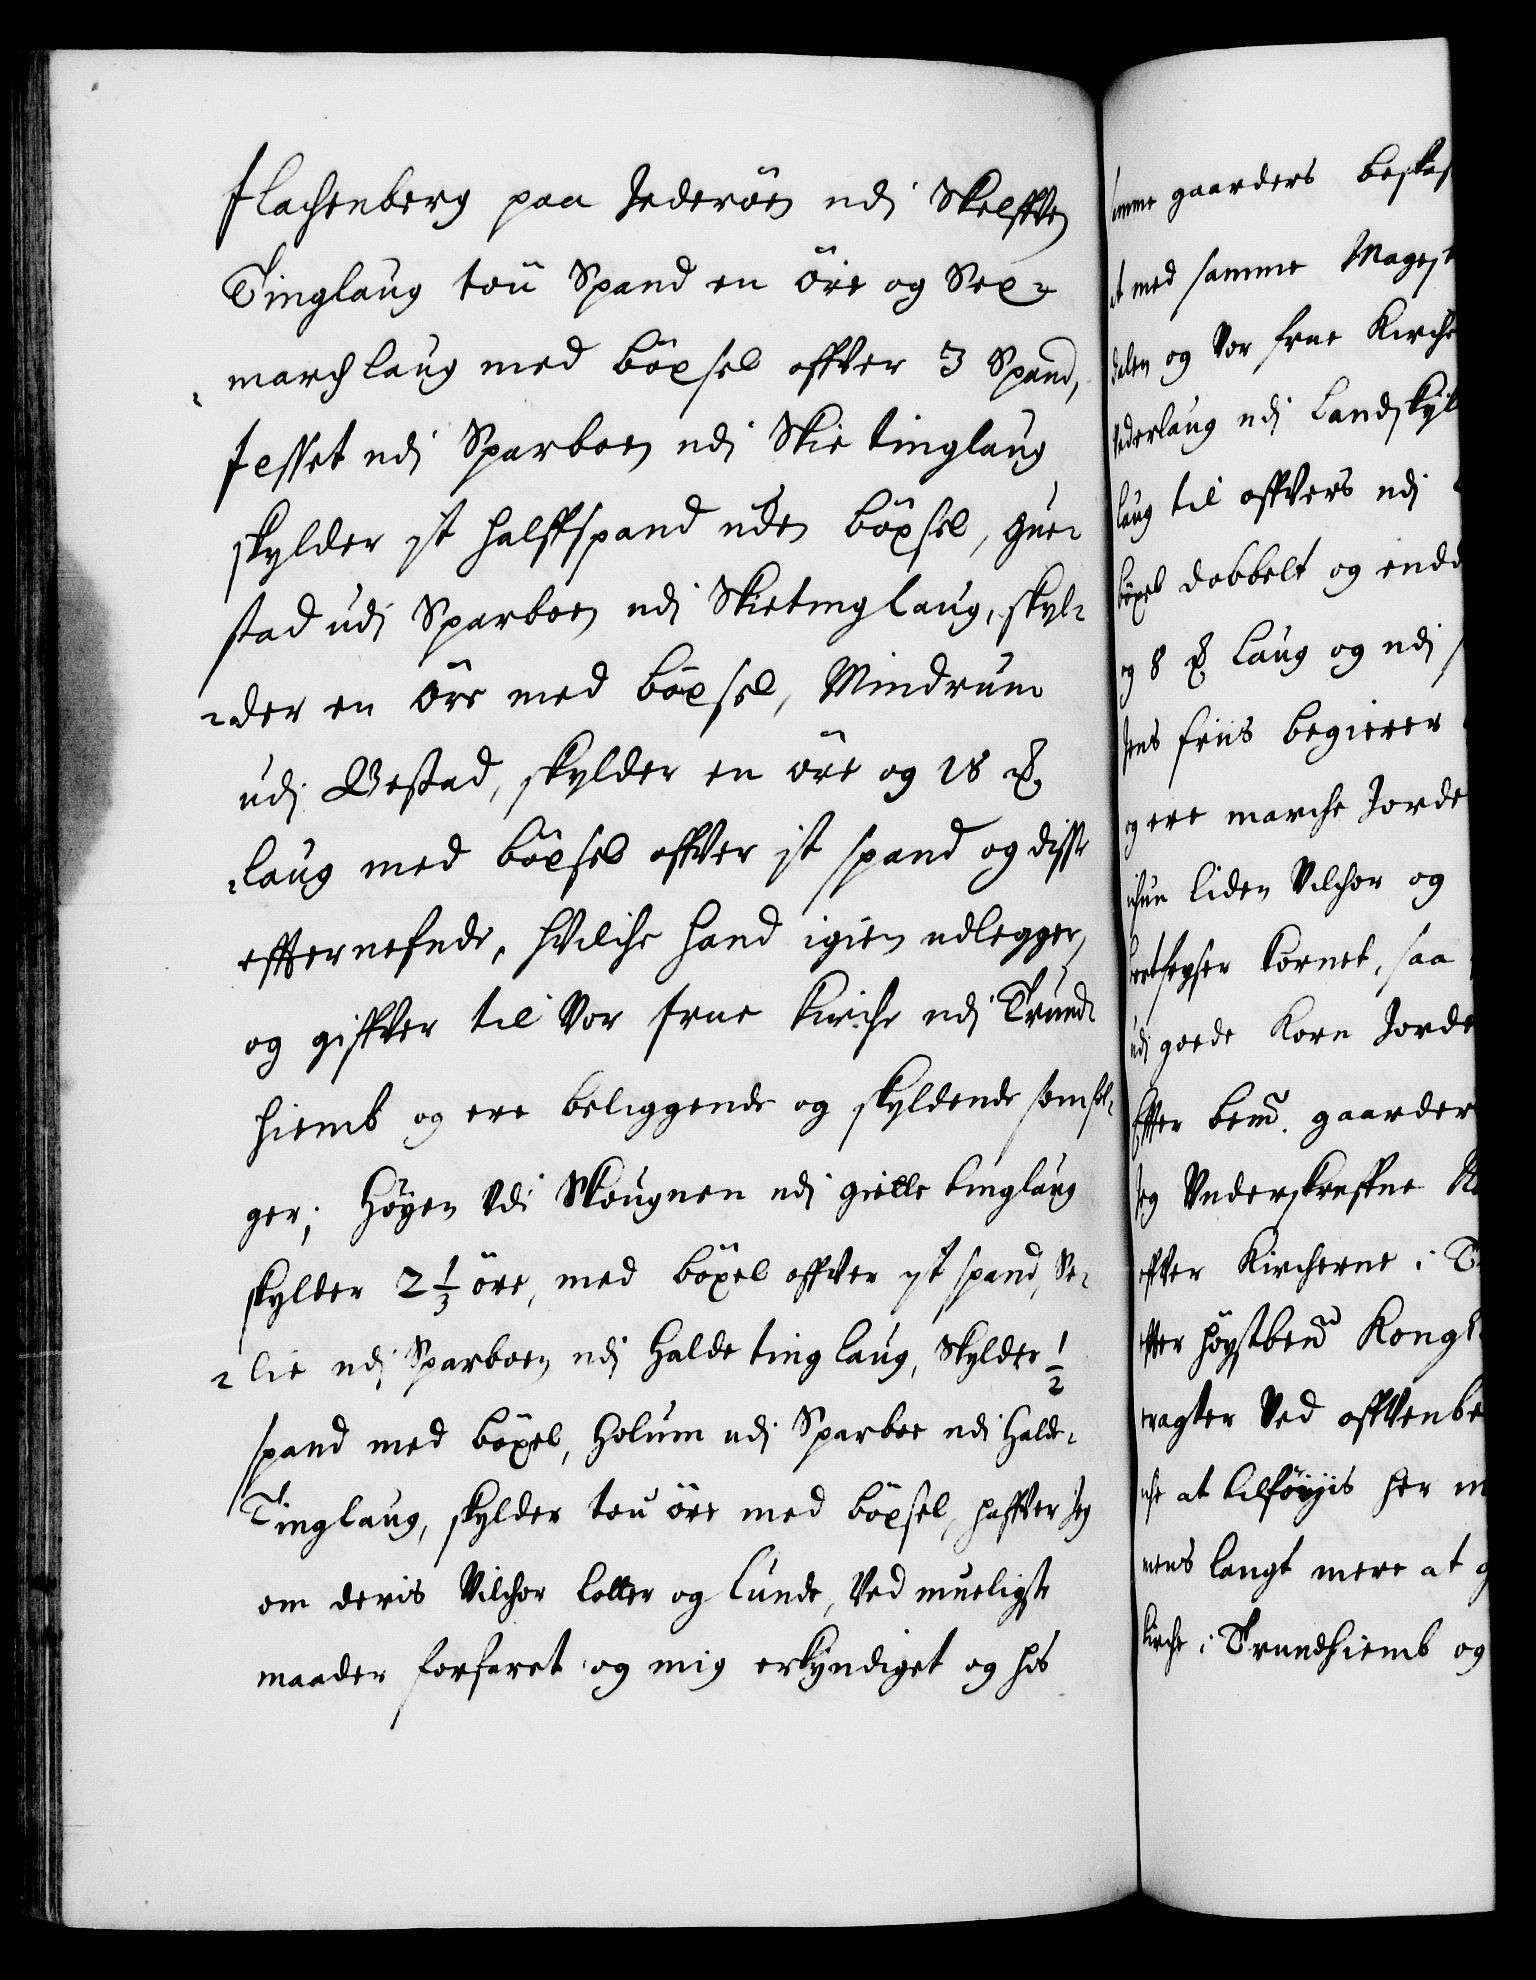 flachenberg paa Inderöen udi Skelffven
Tinglaug tou Spand en öre og Sex-
march laug med böxsel offver 3 Spand,
fesset udi Sparboen udi Skie tinglaug
skylder it halffspand uden böxsel, gue-
stad udi Sparboen udi Skietinglaug, skyl-
-der en öre med böxsel, Mindrum
udi Bestad, skylder en öre og 18 ℔
laug med böxsel offver it spand og disse
efftternefnde, hvilche hand igien udlegger,
og giffver til Vor frue kirche udi Trund-
hiemb og ere beliggende og skyldende som föl-
ger; Höyen Udi Skougnen udi gielle tinglaug
skylder 2 1/3 öre, med böxel offver it spand, Se-
-lie udi Sparboen udi Halde ting laug, Skylder 1/2
spand med böxel, Holum udi Sparboe udi Halde-
Tinglaug, skylder tou öre med böxsel, haffver Jeg
om deris Vilchor lotter og lunde, Ved mueligste
maader forfaret og mig erkyndiget og hos
gaarders
med samme
og Vor frue Kirche
udi Landskyl
laug til offvers udi
dobbelt og
og 8 ℔ laug og udi
friis begierer
og ere marche Jorde
liden Vilchor og
kornet, saa
udi goede Korn Jorde
bemt. gaarder
Jeg Underskreffne
Kircherne i
höystbemt Kongl
Ved
at tilföyis her
langt mere at
kirche i Trundhiemb og